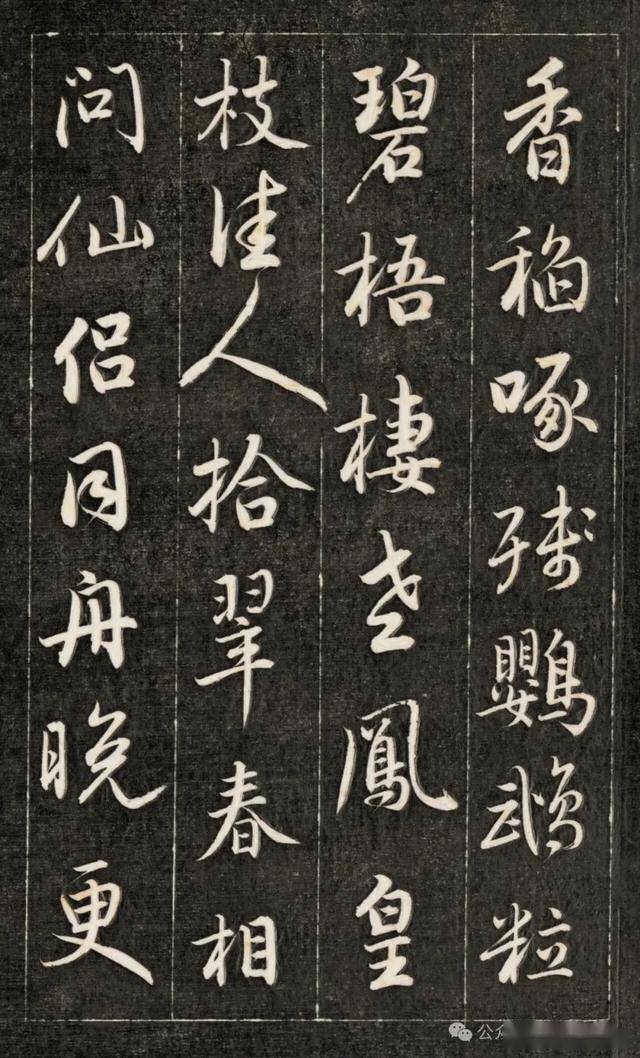 香稻啄残鸚鵡粒
碧梧棲老鳳皇
枝佳人拾翠春相
問仙侣同舟晚更
公众